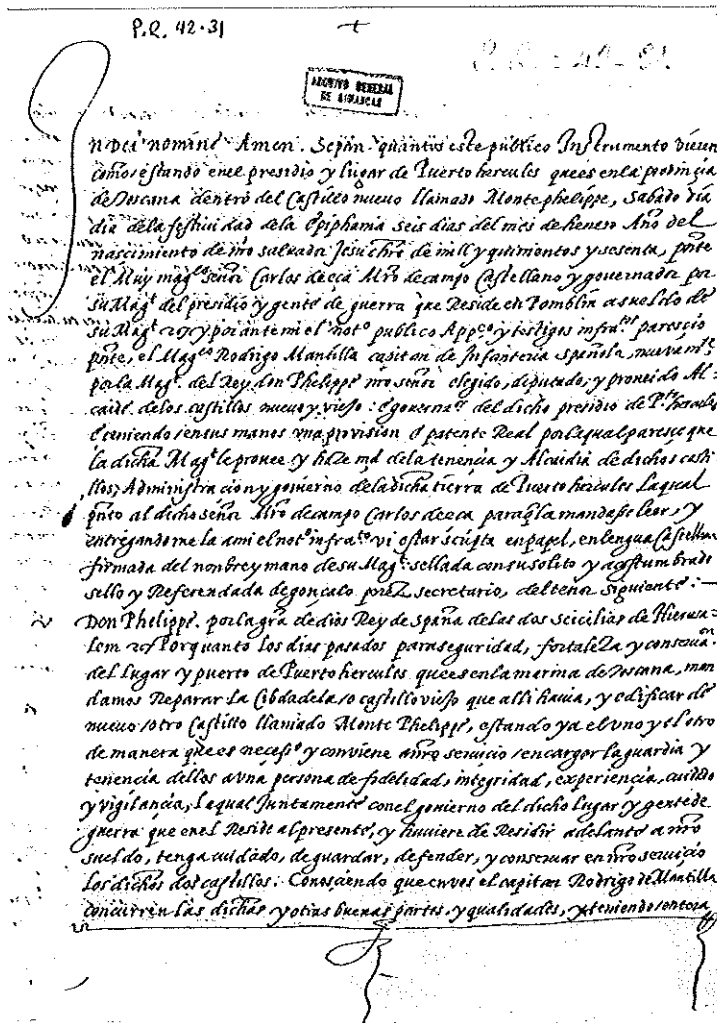 P.R. 42-31
ARCHIVO GENERAL
DE SIMANCAS
n Dei nomine Amen. Sepan quantos este público Instrumento vieren
como estando en el presidio y lugar de Puerto hercules que es en la provinçia
de Toscana dentro del Castillo nuevo llamado Monte phelippe, Sabado dia
dia de la festiuidad de la Epiphania seis dias del mes de henero Año del
nascimiento de nro saluador Jesuchro de mill y quinientos y sesenta, pnte
el Muy magco señor Carlos de eça Mro de campo Castellano y gouernador por
su Magt del presidio y gente de guerra que Reside en Pomblin a sueldo de
su Magt y por ante mi el noto publico Appco y testigos infra paresçio
pnte, el Magco Rodrigo Mantilla capitan de Infanteria Española, nueuamte
por la Magt del Rey don Phelippe nro señor elegido, diputado, y proueido Al-
caide de los castillos nueuo y viejo: e gouernar del dicho presidio de Pto hercules
e teniendo en sus manos vna prouision o patente Real por la qual paresçe que
la dicha Magt le prouee y haze md de la tenencia y Alcaidia de dichos casti
llos, Administracion y gouierno de la dicha tierra de Puerto hercules La qual
pnto al dicho señor Mro de campo Carlos de eça para q la mandase leer, y
entregandome la a mi el noto infra vi estar scripta en papel, en lengua Castellana
firmada del nonbre y mano de su Magt sellada con su solito y acostumbrado
sello y Referendada de gonçalo perez secretario, del tenor siguiente:—
Don Phelippe. por la gra de dios Rey de spaña de las dos scicilias de Hierusa-
lem Por quanto los dias pasados para seguridad, fortaleza y conseruaon
del Lugar y puerto de Puerto hercules que es en la marina de Toscana, man
damos Reparar la Cibdadela o castillo viejo que alli hauia, y edificar de
nueuo otro Castillo llamado Monte Phelippe, estando ya el vno y el otro
de manera que es necesso y conviene a nro seruicio encargar la guardia y
tenencia dellos a vna persona de fidelidad, integridad, experiencia, cuidado
y vigilancia, la qual Juntamente con el gouierno del dicho lugar y gente de
guerra que en el Reside al presente, y huuiere de Residir adelante a nro
sueldo, tenga cuidado, de guardar, defender, y conseruar en nro seruicio
Los dichos dos castillos: Conosçiendo que en vos el capitan Rodrigo de Mantilla
concurren las dichas y otras buenas partes y qualidades, y teniendo